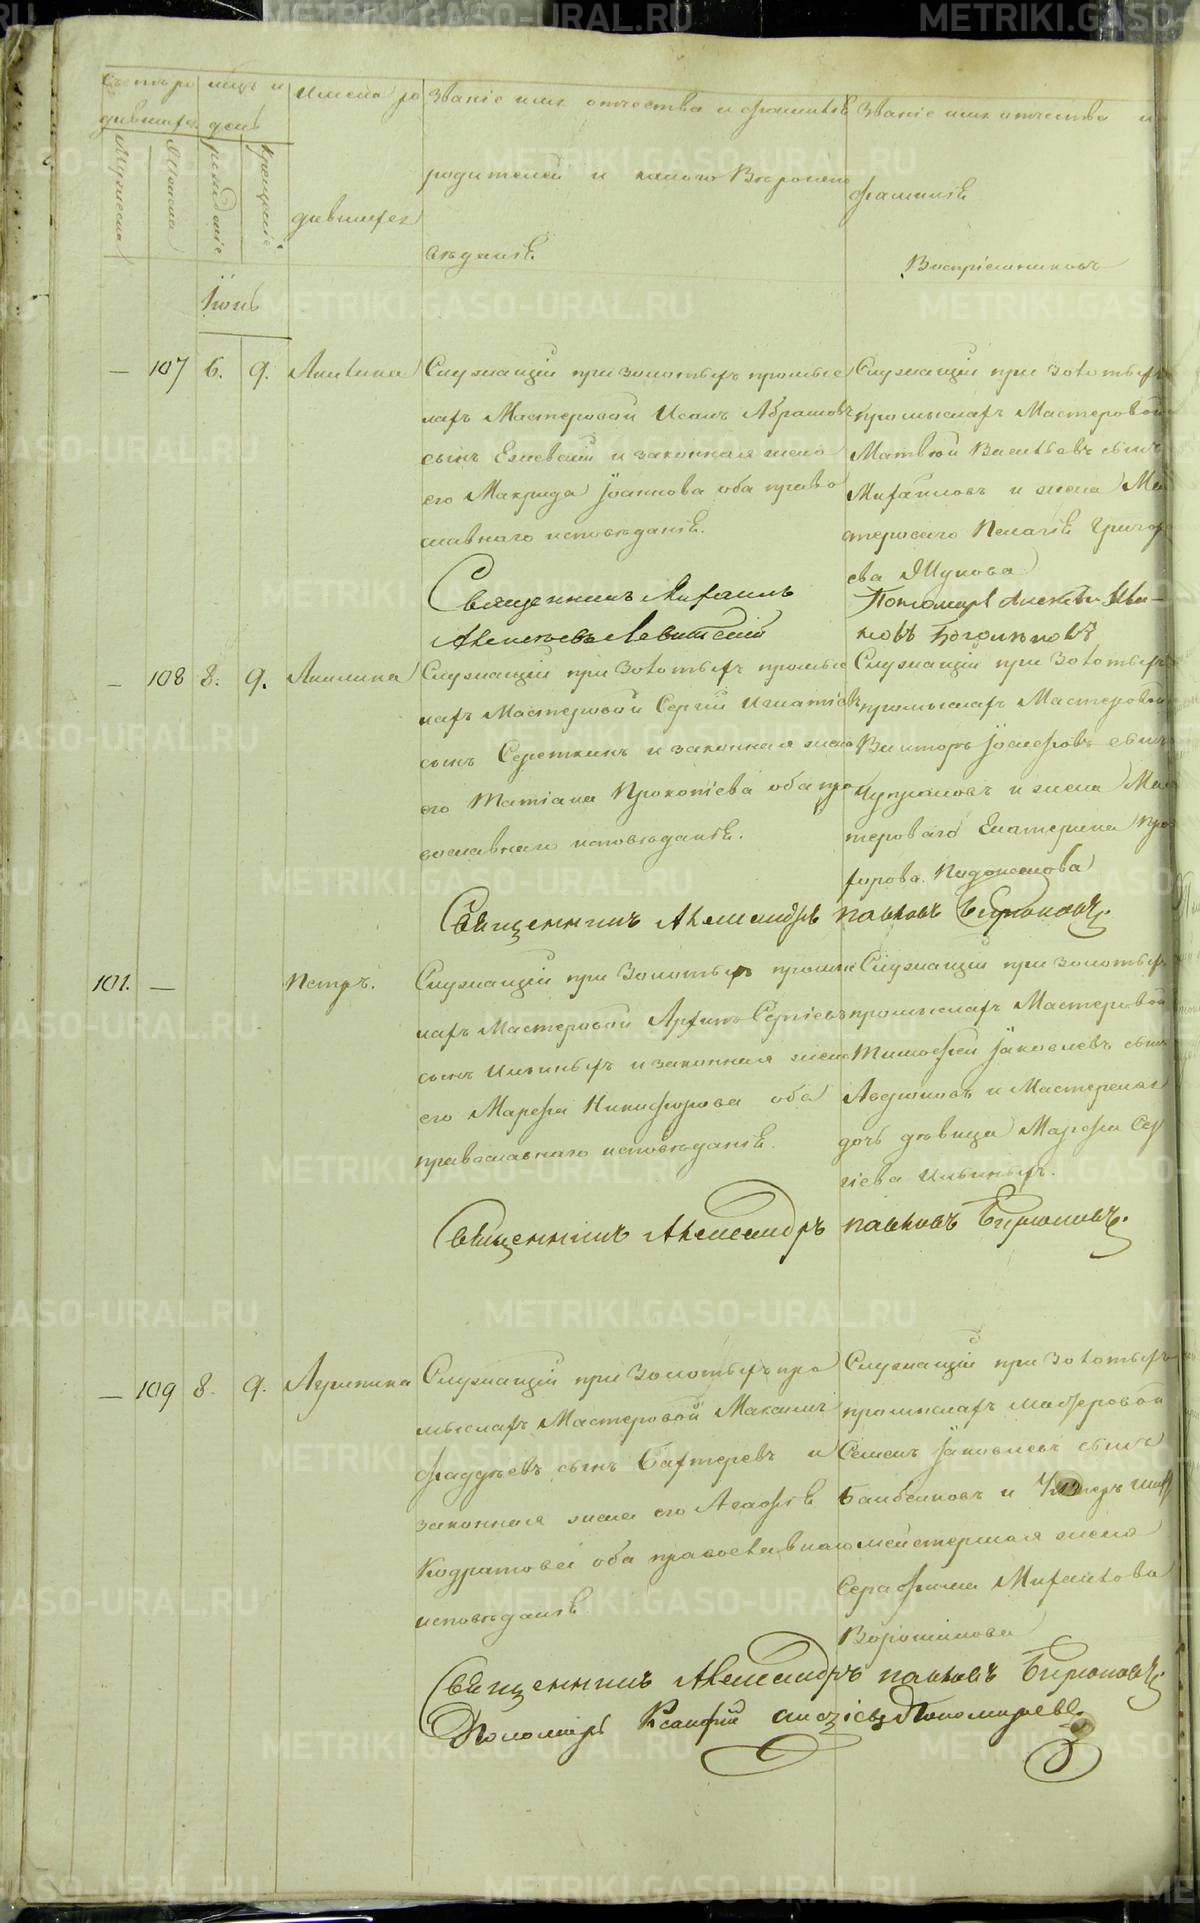 Счетъ ро
дившихся
Мужеска
Женска
Мцъ и
день
рожденіе
крещеніе
Имена ро
дившихся
Званіе имя отчество и фамилія
родителей и какого Вѣроиспо
вѣданія.
Званіе имя отчество и
фамилія
Воспріемниковъ
Іюнь
— 107 6. 9. Акилина
Служащій при золотыхъ промыс
лахъ Мастеровой Исакъ Абрамовъ
сынъ и законная жена
его Макрида Іоаннова оба право
славнаго исповѣданія.
Служащій при Золотыхъ
промыслахъ Мастеровой
Матвей Васильевъ сынъ
Михайловъ и жена Мас
тероваго Пелагія Григорь
ева Жукова
Священникъ Михаилъ
Алексѣевъ Левитскій
Пономарь Алексѣй Ива-
новъ Боголюбовъ
— 108 8. 9. Акилина
Служащій при Золотыхъ промыс
лахъ Мастеровой Сергій Игнатіевъ
сынъ Сереткинъ и законная жена
его Татіана Прокопіева оба пра
вославнаго исповѣданія.
Служащій при Золотыхъ
промыслахъ Мастеровой
Викторъ Іосифовъ сынъ
Чупраковъ и жена Мас
тероваго Екатерина Пор
фирова
Священникъ Александръ Павловъ Бирюковъ.
101. — Петръ.
Служащій при Золотыхъ промыс
лахъ Мастеровой Архипъ Сергіевъ
сынъ Ильиныхъ и законная жена
его Марфа Никифорова оба
православнаго исповѣданія.
Служащій при золотыхъ
промыслахъ Мастеровой
Тимофей Іаковлевъ сынъ
Авдюковъ и Мастерская
дочь дѣвица Марфа Сер
гіева Ильиныхъ.
Священникъ Александръ Павловъ Бирюковъ.
— 109 8. 9. Агрипина
Служащій при Золотыхъ про
мыслахъ Мастеровой Максимъ
Фаддѣевъ сынъ Бахтеревъ и
законная жена его Агафія
Кодратова оба православнаго
исповѣданія
Служащій при Золотыхъ
промыслахъ мастеровой
Семенъ Іаковлевъ сынъ
и Унтеръ шихт
мейстерская жена
Серафима Михайлова
Ворошилова
Священникъ Александръ Павловъ Бирюковъ.
Пономарь Ксанфій Пономаревъ.
METRIKI.GASO-URAL.RU